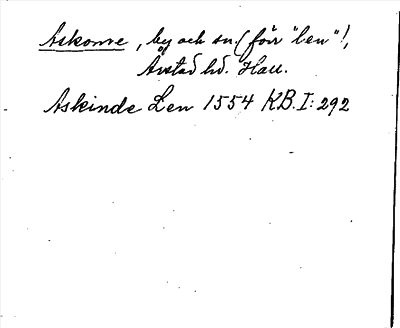 Askome, by och sn. (förr "len"!,
Årstad hd. Hall.
Askinde Len 1554 KB. I: 292